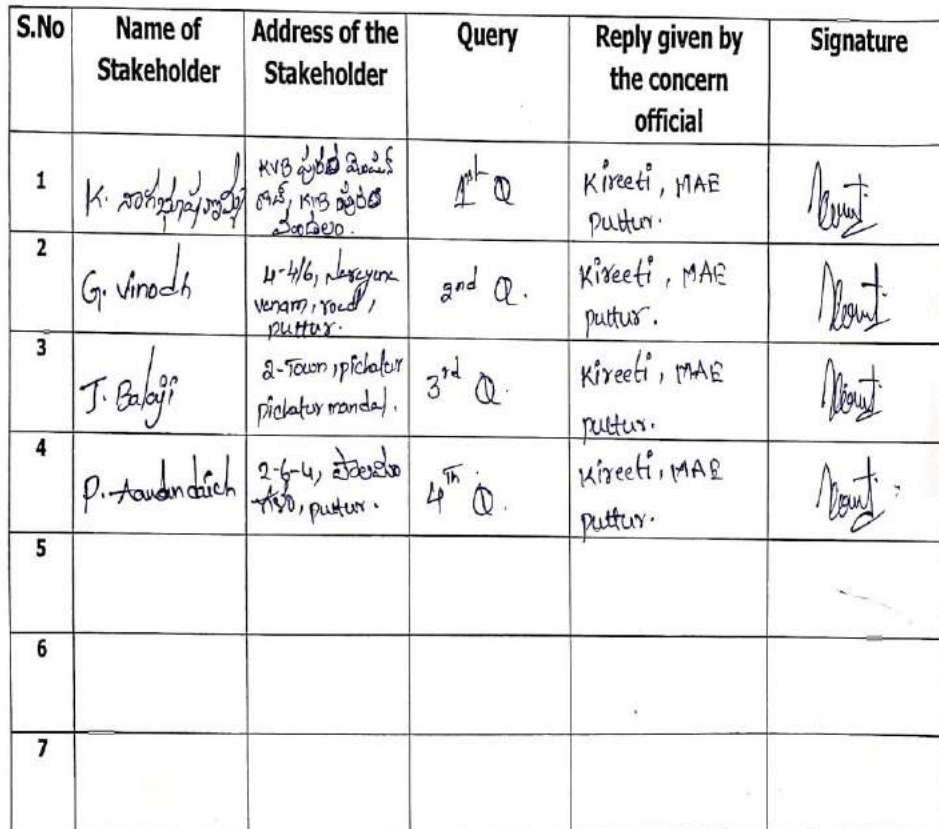 S.No Name of Stakeholder Address of the Stakeholder Query Reply given by the concern official Signature
1 K. KVB పురం మెయిన్ రోడ్, KVB పురం మండలం. 1st Q Kireeti, MAE puttur.
2 G. Vinodh 4-4/6, Narayana venam, road, puttur. 2nd Q. Kireeti, MAE puttur.
3 J. Balaji 2-Town, pichatur pichatur mandal. 3rd Q. Kireeti, MAE puttur.
4 P. 2-6-4, puttur. 4Th Q. Kireeti, MAE puttur.
5
6
7